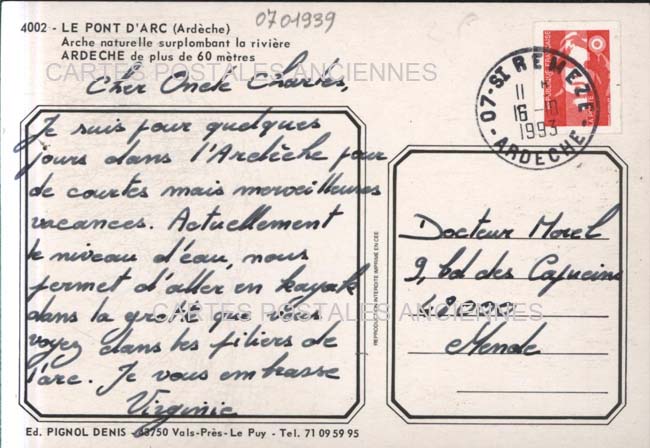 0701939
4002 - LE PONT D'ARC (Ardèche)
Arche naturelle surplombant la rivière
ARDECHE de plus de 60 mètres
CARTES POSTALES ANCIENNES
Cher Oncle Charles,
Je suis pour quelques
jours dans l'Ardèche pour
de courtes mais merveilleuses
vacances. Actuellement
le niveau d'eau, nous
permet d'aller en kayak
dans la grotte que vous
voyez dans les piliers de
l'arc. Je vous embrasse
Virginie
CARTES POSTALES ANCIENNES
REPRODUCTION INTERDITE IMPRIMÉ EN CEE
REPUBLIQUE FRANÇAISE
LA POSTE
07-ST REMEZE
11 H
16-10
1993
ARDECHE
Docteur Morel
9, bd des Capucins
48000
Mende
Ed. PIGNOL DENIS - 43750 Vals-Près-Le Puy - Tel. 71 09 59 95